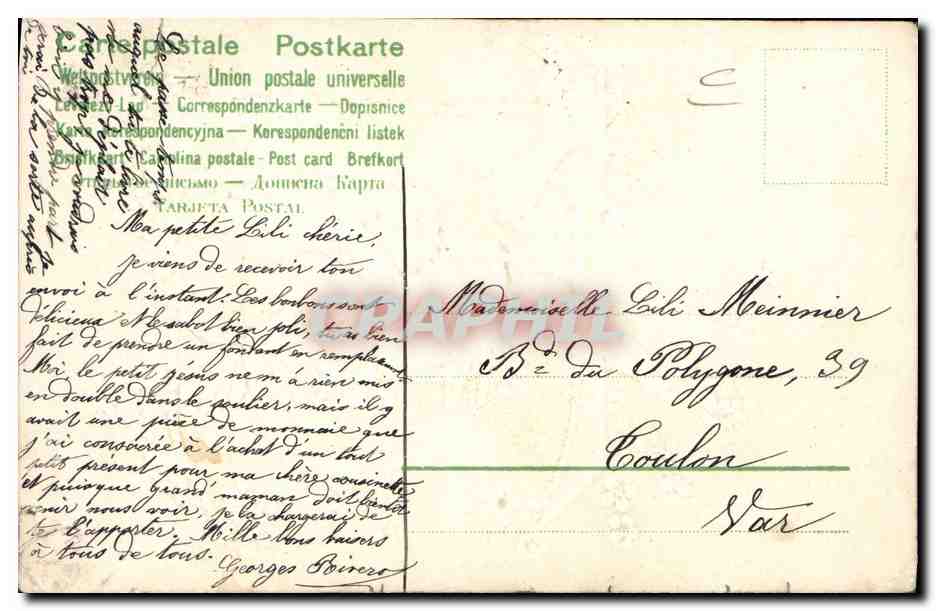 Carte postale Postkarte
Weltpostverein — Union postale universelle
Levelező-Lap — Correspondenzkarte — Dopisnice
Karta korespondencyjna — Korespondenční listek
Briefkaart Cartolina postale - Post card Brefkort
письмо — Дописна Карта
TARJETA POSTAL
Ma petite Lili chérie,
je viens de recevoir ton
envoi à l'instant. Les bonbons sont
délicieux le sabot bien joli, tu as bien
fait de prendre un fondant en remplaçant
Moi le petit jesus ne m'a rien mis
en double dans le soulier, mais il y
avait une pièce de monnaie que
j'ai consacrée à l'achat d'un tout
petit présent pour ma chère cousinette
et puisque grand'maman doit bientôt
venir nous voir, je la chargerai de
te l'apporter. Mille bons baisers
à tous de tous.
Georges
Le passe temps
auquel tu te livre
ne me déplait
pas je voudrais
bien y prendre part
De la sorte
de toi
Mademoiselle Lili Meinnier
Bd du Polygone, 39
Toulon
Var
CPAPHIL